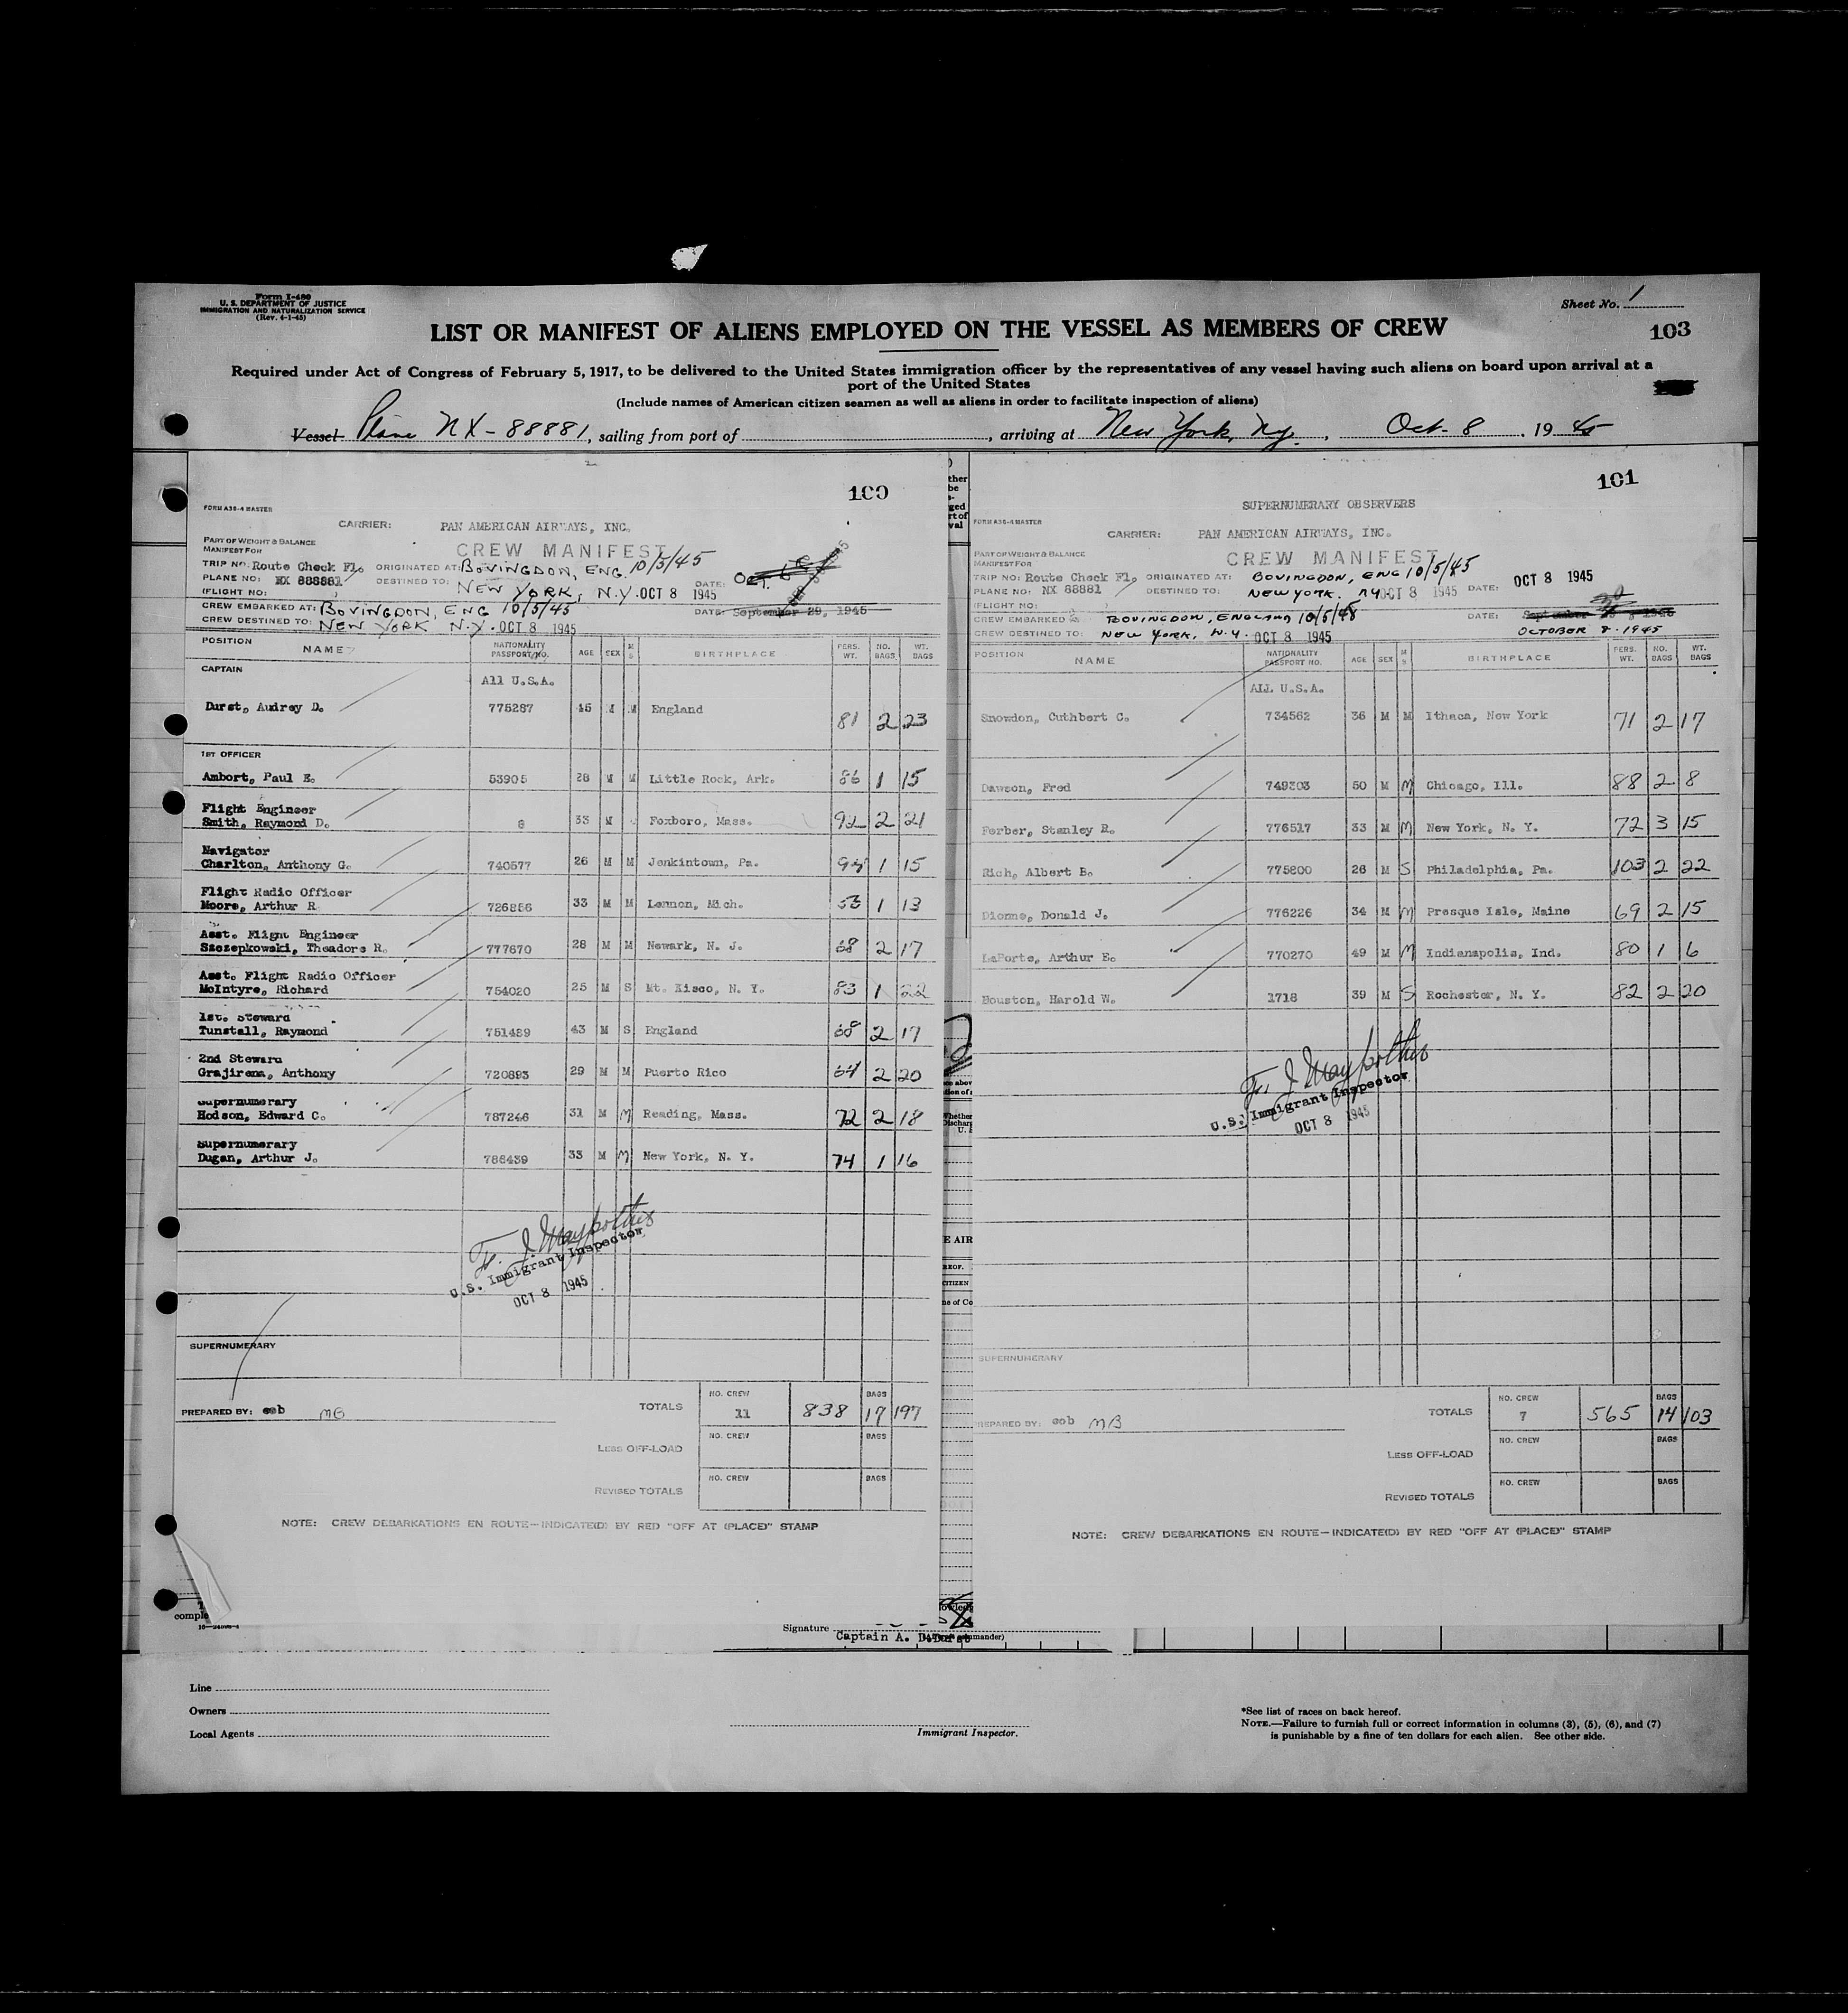 Form I-480
U. S. DEPARTMENT OF JUSTICE
IMMIGRATION AND NATURALIZATION SERVICE
(Rev. 4-1-45)
Sheet No. 1
LIST OR MANIFEST OF ALIENS EMPLOYED ON THE VESSEL AS MEMBERS OF CREW
103
Required under Act of Congress of February 5, 1917, to be delivered to the United States immigration officer by the representatives of any vessel having such aliens on board upon arrival at a
port of the United States
(Include names of American citizen seamen as well as aliens in order to facilitate inspection of aliens)
Vessel Plane NX-88881, sailing from port of , arriving at New York, Ny. , Oct- 8 , 19 45
100
FORM A38-4 MASTER
CARRIER: PAN AMERICAN AIRWAYS, INC.
PART OF WEIGHT & BALANCE
MANIFEST FOR
CREW MANIFEST
TRIP NO: Route Check Fl. ORIGINATED AT: BOVINGDON, ENG. 10/5/45
PLANE NO: NX 88881 DESTINED TO: NEW YORK, N.Y. OCT 8 1945 DATE:
(FLIGHT NO: )
CREW EMBARKED AT: BOVINGDON, ENG 10/5/45 DATE: September 29, 1945
CREW DESTINED TO: NEW YORK N.Y. OCT 8 1945
POSITION NAME NATIONALITY PASSPORT NO. AGE SEX M S BIRTHPLACE PERS. WT. NO. BAGS WT. BAGS
CAPTAIN All U.S.A.
Durst, Audrey D. 775287 45 M M England 81 2 23
1ST OFFICER
Ambort, Paul E. 53905 28 M M Little Rock, Ark. 86 1 15
Flight Engineer
Smith, Raymond D. 33 M Foxboro, Mass. 92 2 21
Navigator
Charlton, Anthony G. 740577 26 M M Jenkintown, Pa. 1 15
Flight Radio Officer
Moore, Arthur R. 726856 33 M M Lennon, Mich. 53 1 13
Asst. Flight Engineer
Szczepkowski, Theadore R. 777870 28 M M Newark, N. J. 68 2 17
Asst. Flight Radio Officer
McIntyre, Richard 754020 25 M S Mt. Kisco, N. Y. 83 1 22
1st. Steward
Tunstall, Raymond 751489 43 M S England 68 2 17
2nd Steward
Grajirena, Anthony 720893 29 M M Puerto Rico 64 2 20
Supernumerary
Hodson, Edward C. 787246 31 M M Reading, Mass. 72 2 18
Supernumerary
Dugan, Arthur J. 786439 33 M M New York, N. Y. 74 1 16
U.S. Immigrant Inspector
OCT 8 1945
SUPERNUMERARY
PREPARED BY: eeb MB TOTALS NO. CREW 11 838 BAGS 17 197
LESS OFF-LOAD NO. CREW BAGS
REVISED TOTALS NO. CREW BAGS
NOTE: CREW DEBARKATIONS EN ROUTE—INDICATE(D) BY RED "OFF AT (PLACE)" STAMP
101
SUPERNUMERARY OBSERVERS
FORM A38-4 MASTER
CARRIER: PAN AMERICAN AIRWAYS, INC.
PART OF WEIGHT & BALANCE
MANIFEST FOR
CREW MANIFEST
TRIP NO: Route Check Fl. ORIGINATED AT: BOVINGDON, ENG 10/5/45
PLANE NO: NX 88881 DESTINED TO: NEW YORK. NY OCT 8 1945 DATE: OCT 8 1945
(FLIGHT NO: )
CREW EMBARKED BOVINGDON, ENGLAND 10/5/45 DATE:
CREW DESTINED TO: NEW YORK, N.Y. OCT 8 1945 OCTOBER 8·1945
POSITION NAME NATIONALITY PASSPORT NO. AGE SEX M S BIRTHPLACE PERS. WT. NO. BAGS WT. BAGS
ALL U.S.A.
Snowdon, Cuthbert C. 734562 36 M M Ithaca, New York 71 2 17
Dawson, Fred 749303 50 M M Chicago, Ill. 88 2 8
Ferber, Stanley R. 776517 33 M M New York, N. Y. 72 3 15
Rich, Albert B. 775800 28 M S Philadelphia, Pa. 103 2 22
Dionne, Donald J. 776226 34 M M Presque Isle, Maine 69 2 15
LaPorte, Arthur E. 770270 49 M M Indianapolis, Ind. 80 1 6
Houston, Harold W. 1718 39 M S Rochester, N. Y. 82 2 20
U.S. Immigrant Inspector
OCT 8 1945
SUPERNUMERARY
PREPARED BY: eeb MB TOTALS NO. CREW 7 565 BAGS 14 103
LESS OFF-LOAD NO. CREW BAGS
REVISED TOTALS NO. CREW BAGS
NOTE: CREW DEBARKATIONS EN ROUTE—INDICATE(D) BY RED "OFF AT (PLACE)" STAMP
Signature
Captain A. D. Durst
Line
Owners
Local Agents
Immigrant Inspector.
*See list of races on back hereof.
NOTE.—Failure to furnish full or correct information in columns (3), (5), (6), and (7)
is punishable by a fine of ten dollars for each alien. See other side.